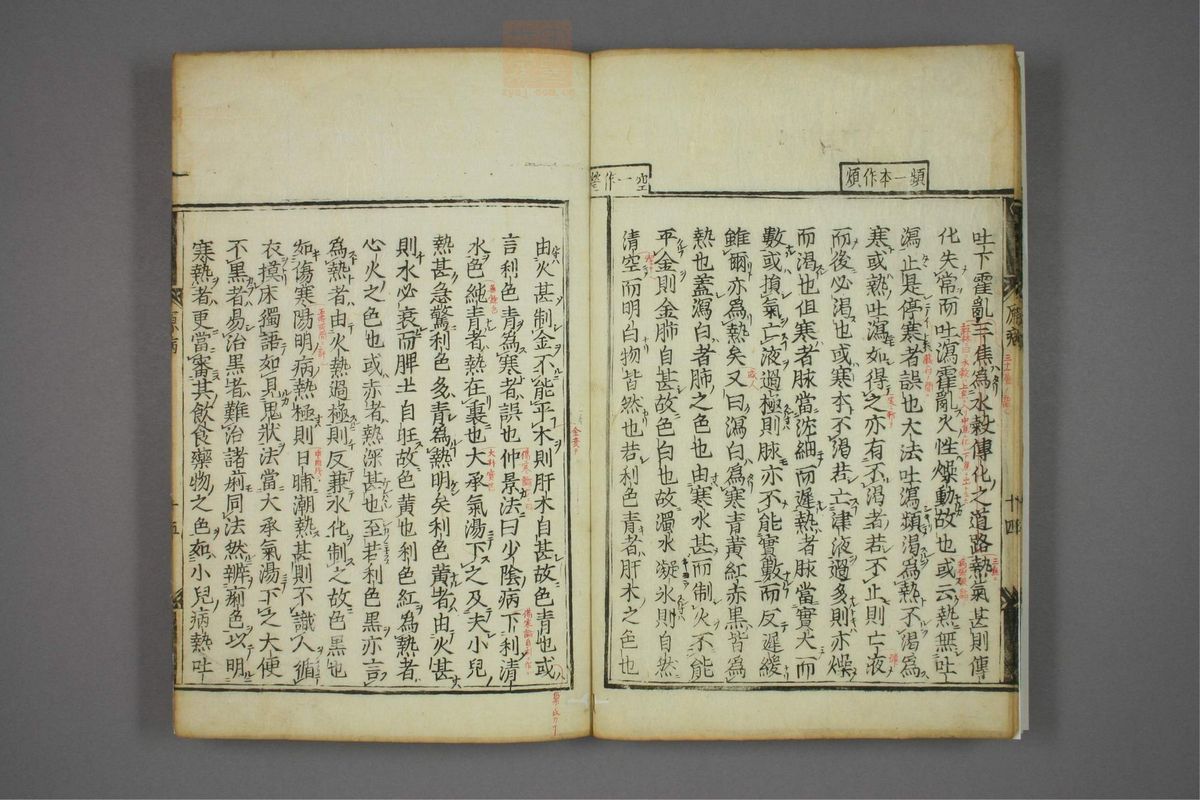 頻一本作煩
空一作瑩
吐下霍亂三焦為水穀傳化之道路熱氣甚則傳
化失常而吐瀉霍亂火性燥動故也或云熱無吐
瀉止是停寒者誤也大法吐瀉煩渴為熱不渴為
寒或熱吐瀉始得之亦有不渴者若不止則亡液
而後必渴也或寒本不渴若亡津液過多則亦燥
而渴也但寒者脉當沈細而遲熱者脉當實大而
數或損氣亡液過極則脉亦不能實數而反遲緩
雖爾亦為熱矣又曰瀉白為寒青黃紅赤黑皆為
熱也蓋瀉白者肺之色也由寒水甚而制火不能
平金則金肺自甚故色白也故濁水凝氷則自然
清空而明白物皆然也若利色青者肝木之色也
由火甚制金不能平木則肝木自甚故色青也或
言利色青為寒者誤也仲景法曰少陰病下利清
水色純青者熱在裏也大承氣湯下之及夫小兒
熱甚急驚利色多青為熱明矣利色黃者由火甚
則水必衰而脾土自旺故色黃也利色紅為熱者
心火之色也或赤者熱深甚也至若利色黑亦言
為熱者由火熱過極則反兼水化制之故色黑也
如傷寒陽明病熱極則日晡潮熱甚則不識人循
衣摸床獨語如見鬼狀法當大承氣湯下之大便
不黑者易治黑者難治諸痢同法然辨痢色以明
寒熱者更當審其飲食藥物之色如小兒病熱吐
原病
十四
原病
十五